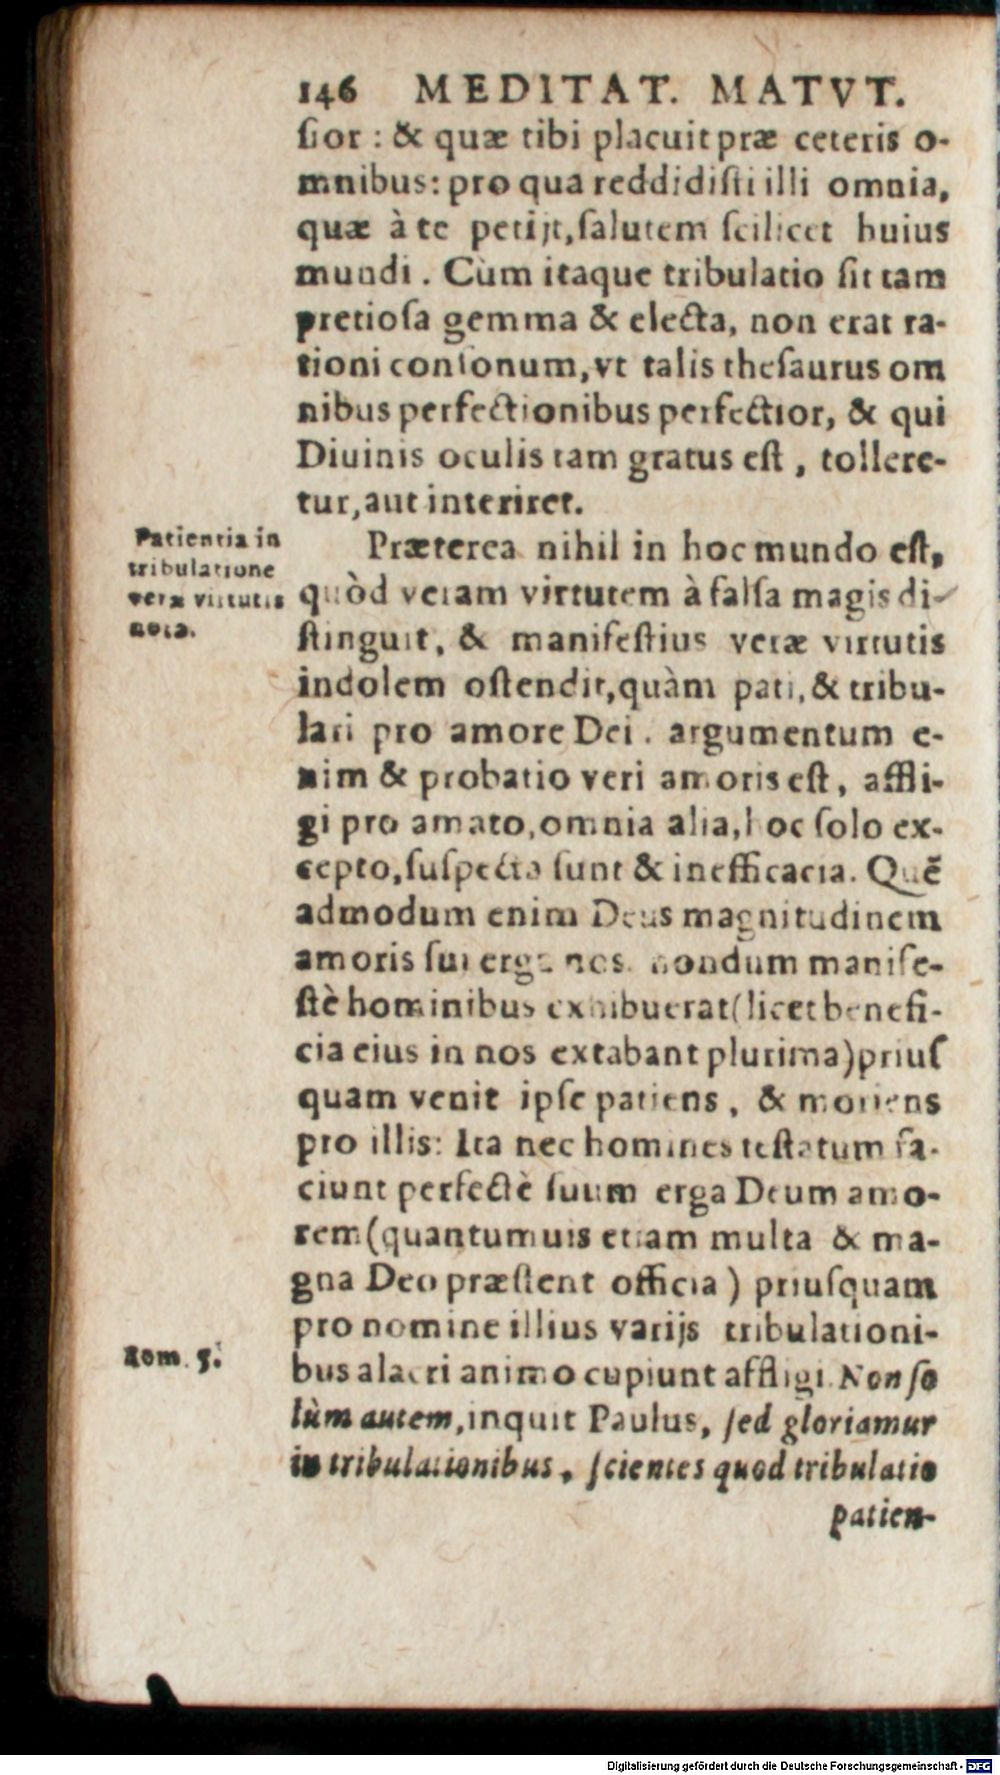 146 MEDITAT. MATVT.
ſior : & quæ tibi placuit præ ceteris o-
mnibus: pro qua reddidiſti illi omnia,
quæ à te petijt, ſalutem ſcilicet huius
mundi . Cùm itaque tribulatio ſit tam
pretioſa gemma & electa, non erat ra-
tioni conſonum, vt talis theſaurus om
nibus perfectionibus perfectior, & qui
Diuinis oculis tam gratus eſt , tollere-
tur, aut interiret.
Patientia in
tribulatione
veræ virtutis
nota.
Præterea nihil in hoc mundo eſt,
quòd veram virtutem à falſa magis di-
ſtinguit, & manifeſtius veræ virtutis
indolem oſtendit, quàm pati, & tribu-
lari pro amore Dei . argumentum e-
nim & probatio veri amoris eſt , affli-
gi pro amato, omnia alia, hoc ſolo ex-
cepto, ſuſpecta ſunt & inefficacia. Quẽ
admodum enim Deus magnitudinem
amoris ſui erga nos nondum manife-
ſtè hominibus exhibuerat (licet benefi-
cia eius in nos extabant plurima) priuſ
quam venit ipſe patiens , & moriens
pro illis: Ita nec homines teſtatum fa-
ciunt perfectè ſuum erga Deum amo-
rem (quantumuis etiam multa & ma-
gna Deo præſtent officia ) priuſquam
pro nomine illius varijs tribulationi-
Rom. 5.
bus alacri animo cupiunt affligi. Non ſo
lùm autem, inquit Paulus, ſed gloriamur
in tribulationibus , ſcientes quod tribulatio
patien-
Digitalisierung gefördert durch die Deutsche Forschungsgemeinschaft - DFG